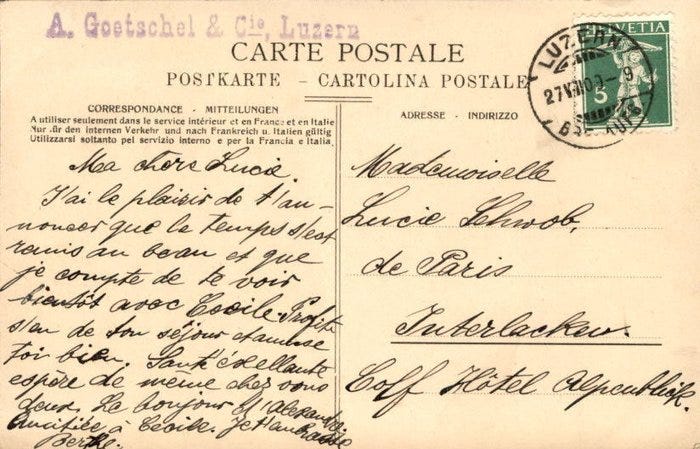 A. Goetschel & Cie, Luzern
CARTE POSTALE
POSTKARTE - CARTOLINA POSTALE
CORRESPONDANCE - MITTEILUNGEN
A utiliser seulement dans le service intérieur et en France et en Italie
Nur für den internen Verkehr und nach Frankreich u. Italien gültig
Utilizzarsi soltanto pel servizio interno e per la Francia e Italia
Ma chère Lucie.
J'ai le plaisir de t'an-
noncer que le temps s'est
remis au beau et que
je compte de te voir
bientôt avec Cécile Profite
s'en de ton séjour et amuse
toi bien. Santé éxellante
espère de meme chez vous
deux. Le bonjour d'Alexandre
Amitiée à Cécile. Je t'embrasse
Berthe.
ADRESSE - INDIRIZZO
Mademoiselle
Lucie Schwob,
de Paris
Interlacken.
Coff Hôtel Alpenblick.
HELVETIA
5
LUZERN
27 VII 09 - 9